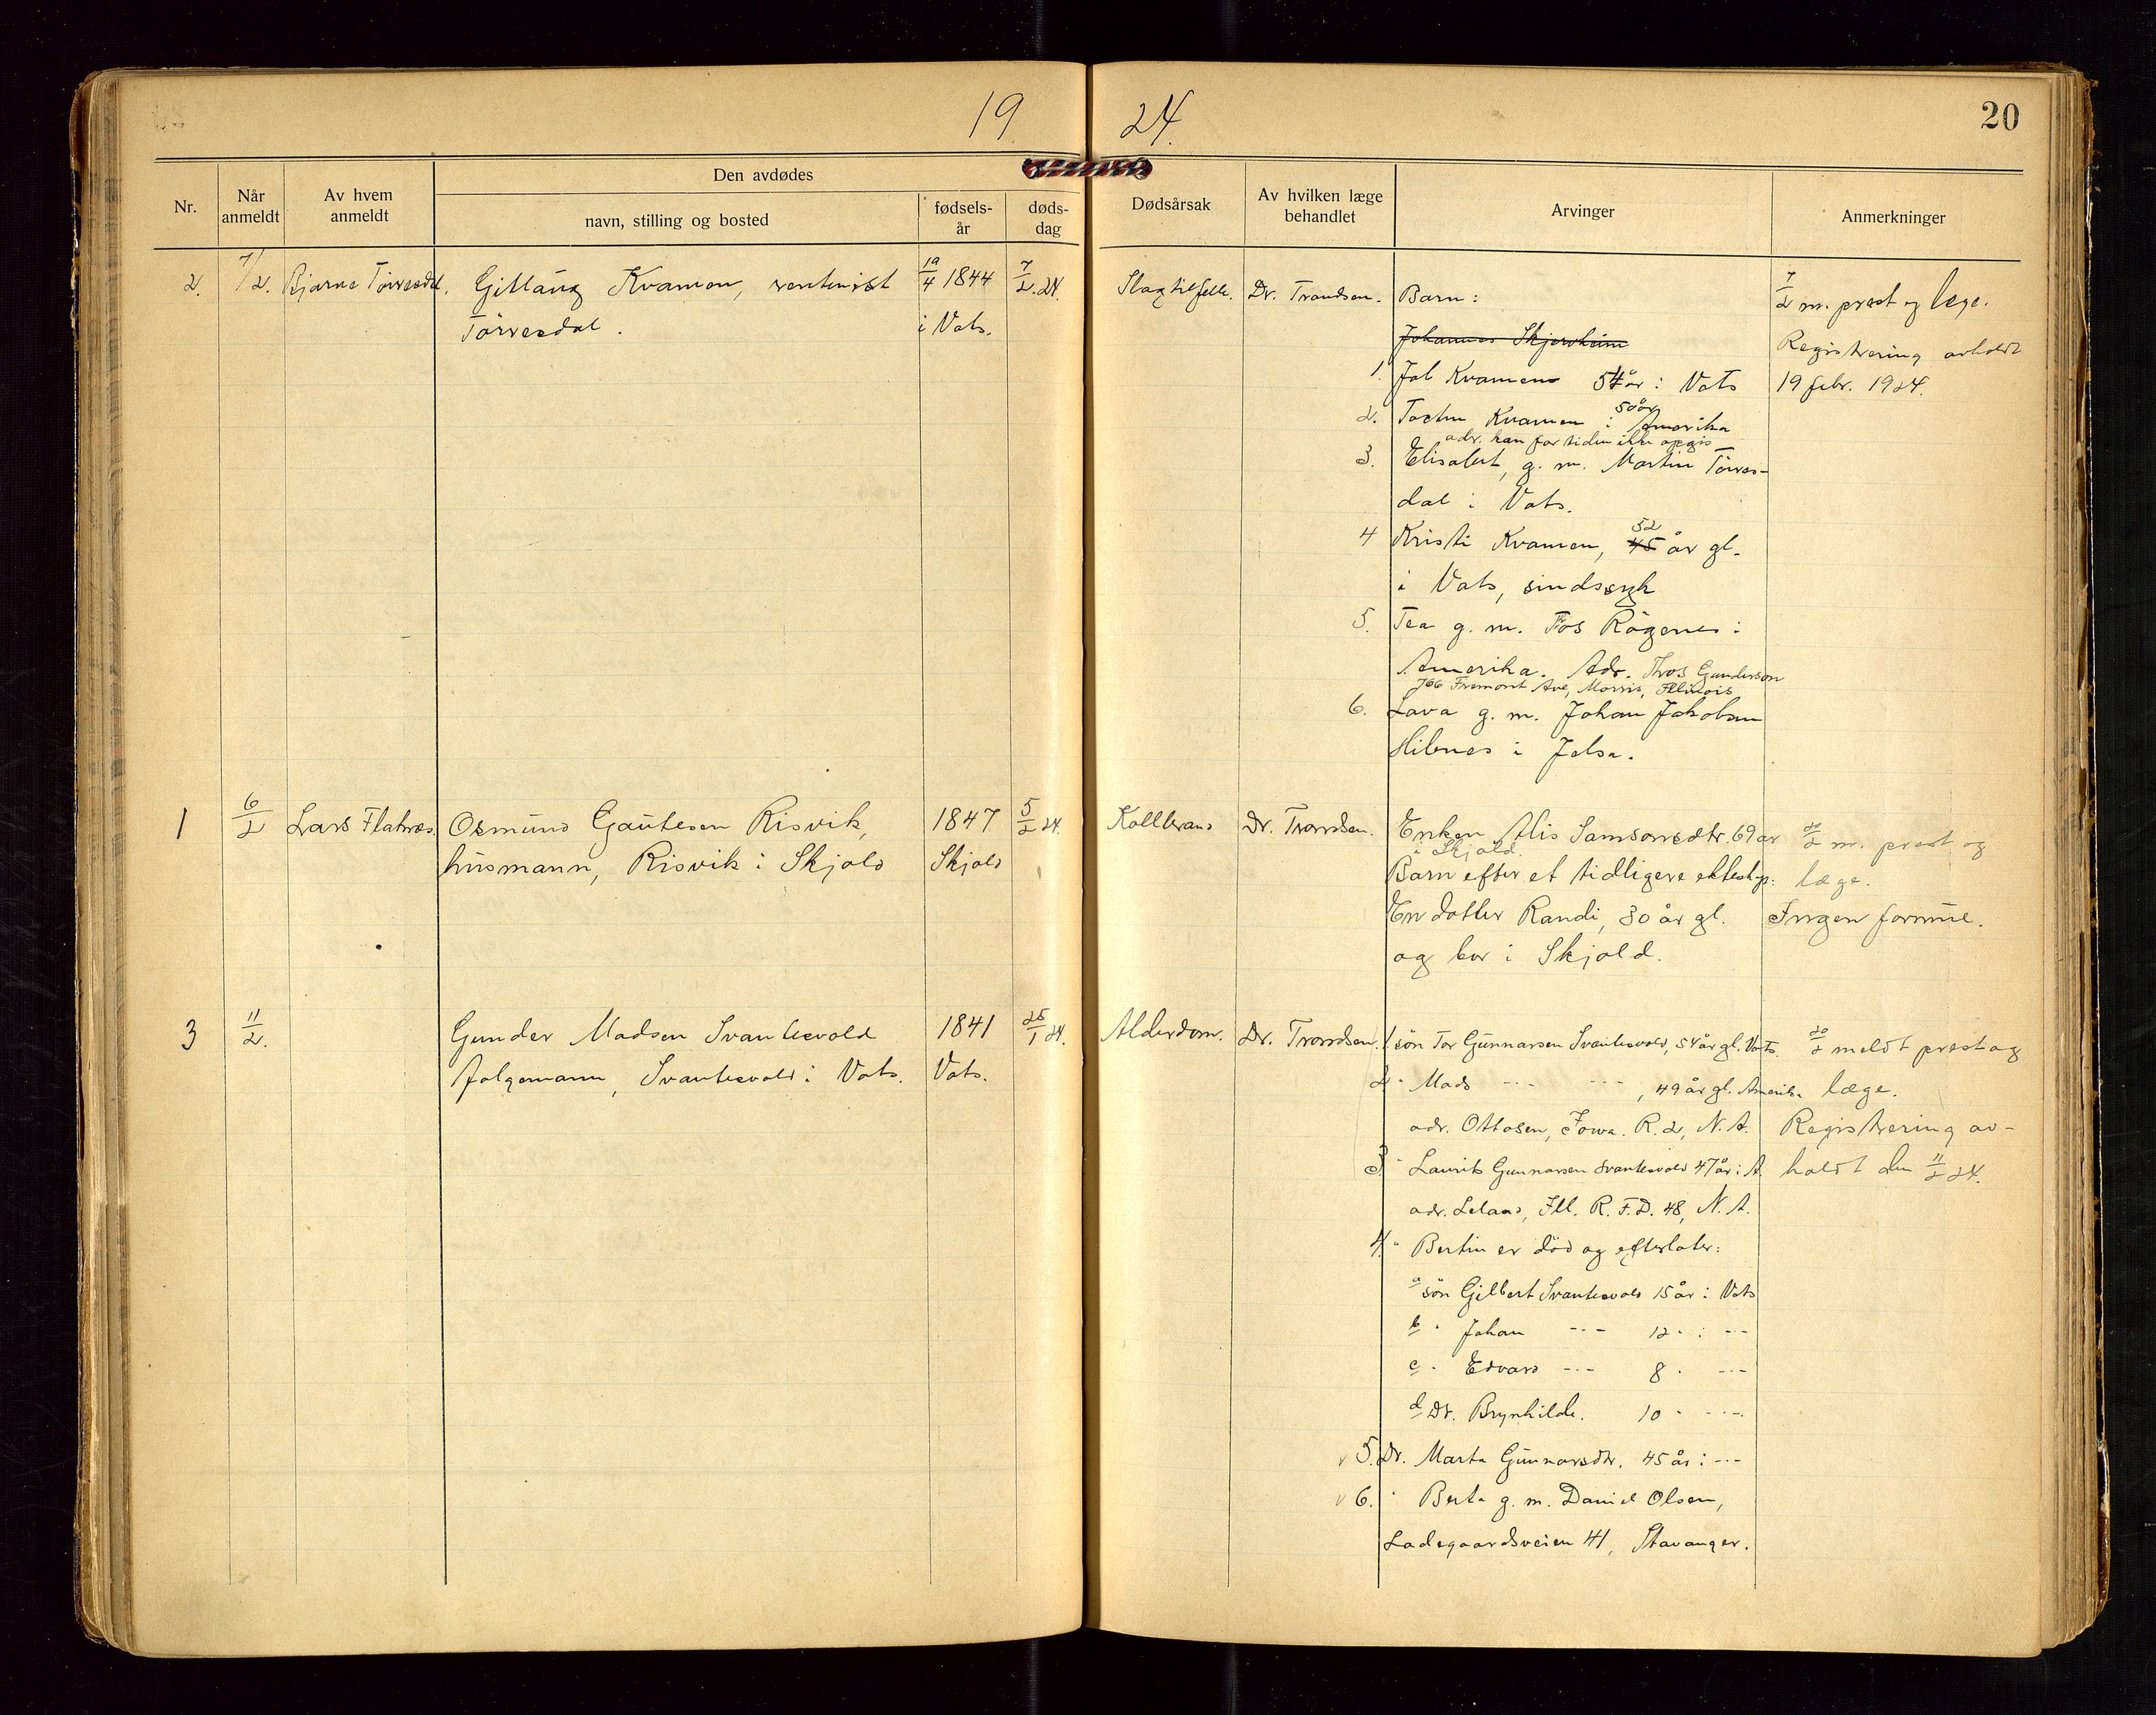 19 24.
20
Nr.
Når anmeldt
Av hvem anmeldt
Den avdødes
navn, stilling og bosted
fødsels-år
døds-dag
Dødsårsak
Av hvilken læge behandlet
Arvinger
Anmerkninger
2. 7/2. Bjarne Törvesdal. Gitlaug Kvamen, rentenist 19/4 1844 7/2.24.
Törvesdal. i Vats.
Slagtilfelle. Dr. Trondsen. Barn:
Johannes Skjersheim
1. Jol Kvamen 54 år i Vats
2. Tostm Kvamen 50 år i Amerika
adr. kan for tiden ikke opgis
3. Elisabet, g. m. Martin Törves-
dal i Vats.
4 Kristi Kvamen, 45 52 år gl.
i Vats, sindssyk
5. Tea g. m. Tos Rögenes i
Amerika. Adr. Thos Gunderson
766 Fremont Ave, Morris, Illinois
6. Lava g. m. Johan Jakobsen
Hibnes i Jelsa.
7/2 m. prest og læge.
Registrering avholdt
19 febr. 1924.
1 6/2 Lars Flatnes. Osmund Gautesen Risvik, 1847 5/2 24.
husmann, Risvik i Skjold Skjold
Kollbrand Dr. Trondsen. Enken Alis Samsonsdtr. 69 år
i Skjold.
Barn efter et tidligere ekteskap:
En dotter Randi, 30 år gl.
og bor i Skjold.
20/2 m. prest og
læge.
Ingen formue.
3 11/2. Gunder Madsen Svantesvold 1841 25/1 24.
folgemann, Svantesvold i Vats. Vats.
Alderdom. Dr. Trondsen. 1. sön Tor Gunnarsen Svantesvold, 54 år gl. Vats.
2 " Mads -"- -"-, 49 år gl. Amerika
adr. Ottosen, Iowa. R. 2, N. A.
3 " Laurits Gunnarsen Svantesvold 47 år i A.
adr. Leland, Ill. R. F. D. 48, N. A.
4. " Bertin er död og efterlater:
a sön Gilbert Svantesvold 15 år i Vats
b " Johan -"- 12 " i -"-
c " Edvard -"- 8 " -"-
d Dt. Brynhilde. 10 " -"-
5. Dr. Marta Gunnarsdtr. 45 år i -"-
6. " Berta g. m. Daniel Olsen,
Ladegaardsveien 41, Stavanger.
20/2 meldt prest og
læge.
Registrering av-
holdt den 11/2 24.